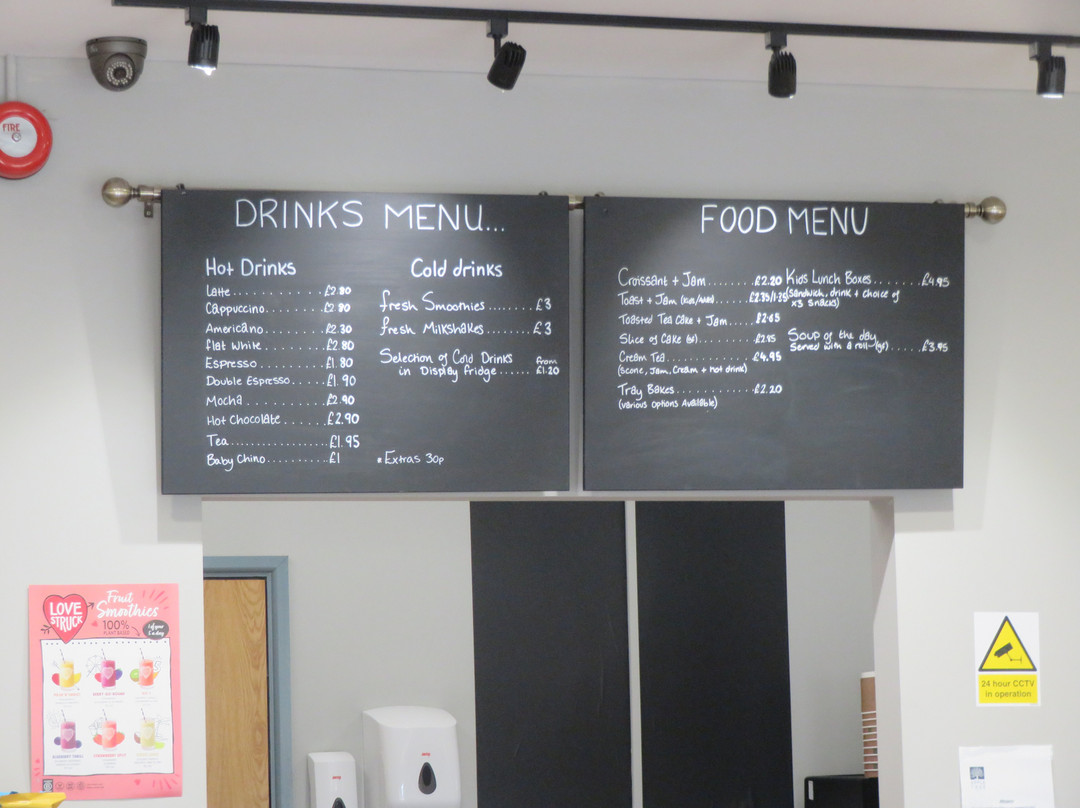 FIRE
DRINKS MENU...
Hot Drinks
Latte............£2.80
Cappuccino.........£2.80
Americano..........£2.30
flat White..........£2.80
Espresso..........£1.80
Double Espresso.....£1.90
Mocha............£2.90
Hot Chocolate......£2.90
Tea...............£1.95
Baby Chino..........£1
Cold drinks
fresh Smoothies........£3
fresh Milkshakes........£3
Selection of Cold Drinks from
in Display fridge......£1.20
*Extras 30p
FOOD MENU
Croissant + Jam........£2.20
Toast + Jam
Toasted Tea Cake + Jam.....£2.65
Slice of Cake (gf)..........£2.95
Cream Tea............£4.95
(Scone, Jam, Cream + hot drink)
Tray Bakes............£2.20
(various options Available)
Kids Lunch Boxes........£4.95
(Sandwich, drink + choice of
x3 snacks)
Soup of the day
Served with a roll (gf)......£3.95
LOVE
STRUCK
Fruit
Smoothies
100%
PLANT BASED
24 hour CCTV
in operation